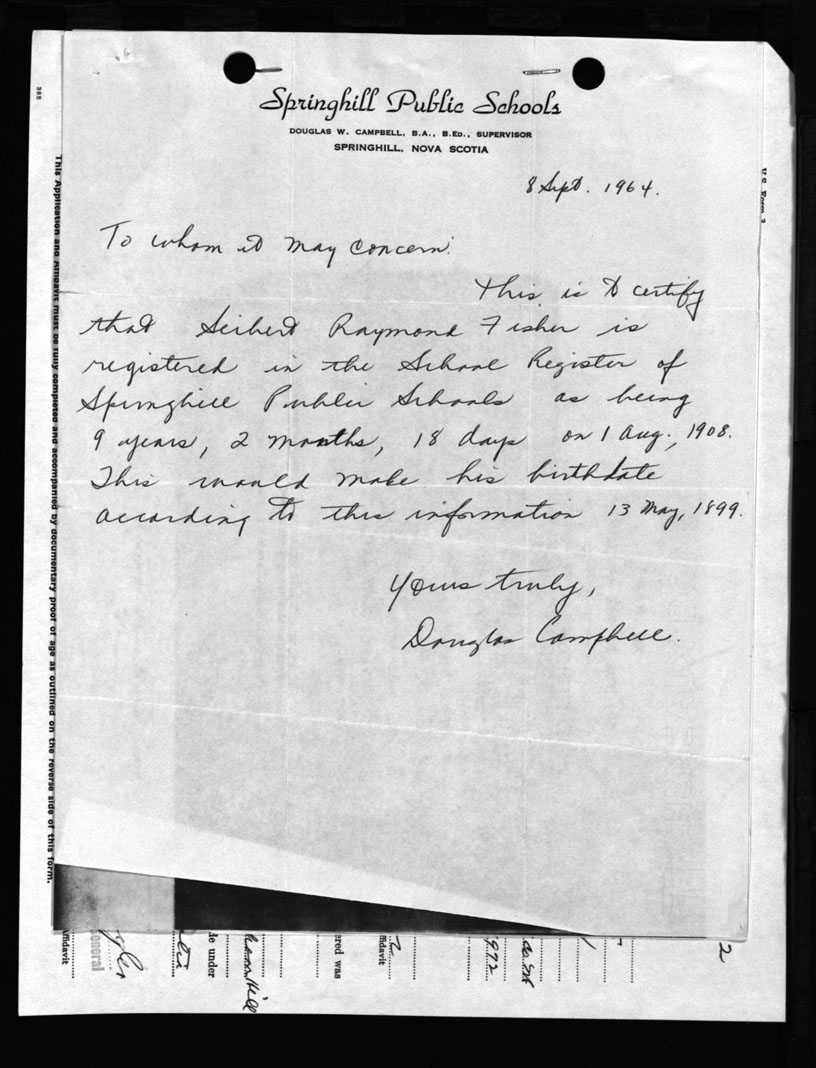 Springhill Public Schools
DOUGLAS W. CAMPBELL, B.A., B.ED., SUPERVISOR
SPRINGHILL, NOVA SCOTIA
8 Sept. 1964.
To whom it may concern:
This is to certify
that Seibert Raymond Fisher is
registered in the School Register of
Springhill Public Schools as being
9 years, 2 months, 18 days on 1 Aug., 1908.
This would make his birthdate
according to this information 13 May, 1899.
Yours truly,
Douglas Campbell.
385
This Application and Affidavit must be fully completed and accompanied by documentary proof of age as outlined on the reverse side of this form.
ffidavit
eneral
ie under
ered was
ffidavit
1972
2